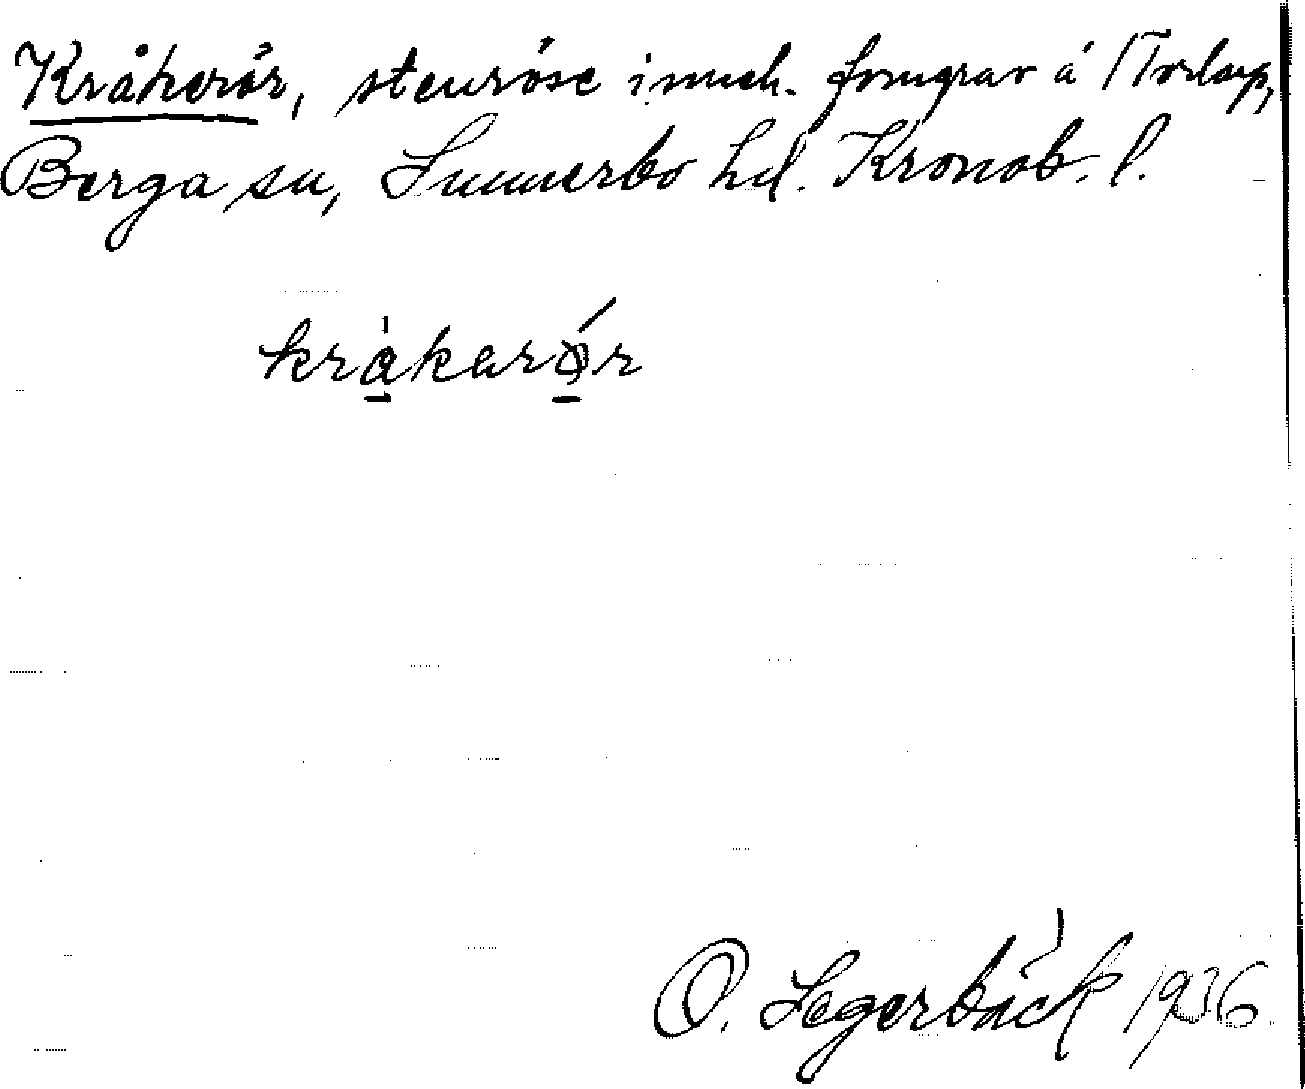 Kråkerör, stenröse inneh. forngrav å /Torlarp,
Berga sn, Sunnerbo hd. Kronob. l.
kråkarör
O. Segerbäck 1936